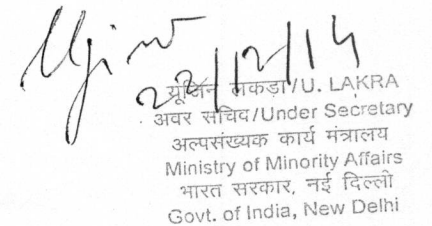 22/12/14
यूजिन लाकड़ा/U. LAKRA
अवर सचिव/Under Secretary
अल्पसंख्यक कार्य मंत्रालय
Ministry of Minority Affairs
भारत सरकार, नई दिल्ली
Govt. of India, New Delhi